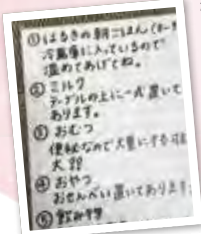 ①はるきの朝ごはん(
冷蔵庫に入っているので
温めてあげてね。
②ミルク
テーブルの上に一式置いて
あります。
③おむつ
便秘なので大量にする可能
大
④おやつ
おせんべい置いてあります
⑤飲み物